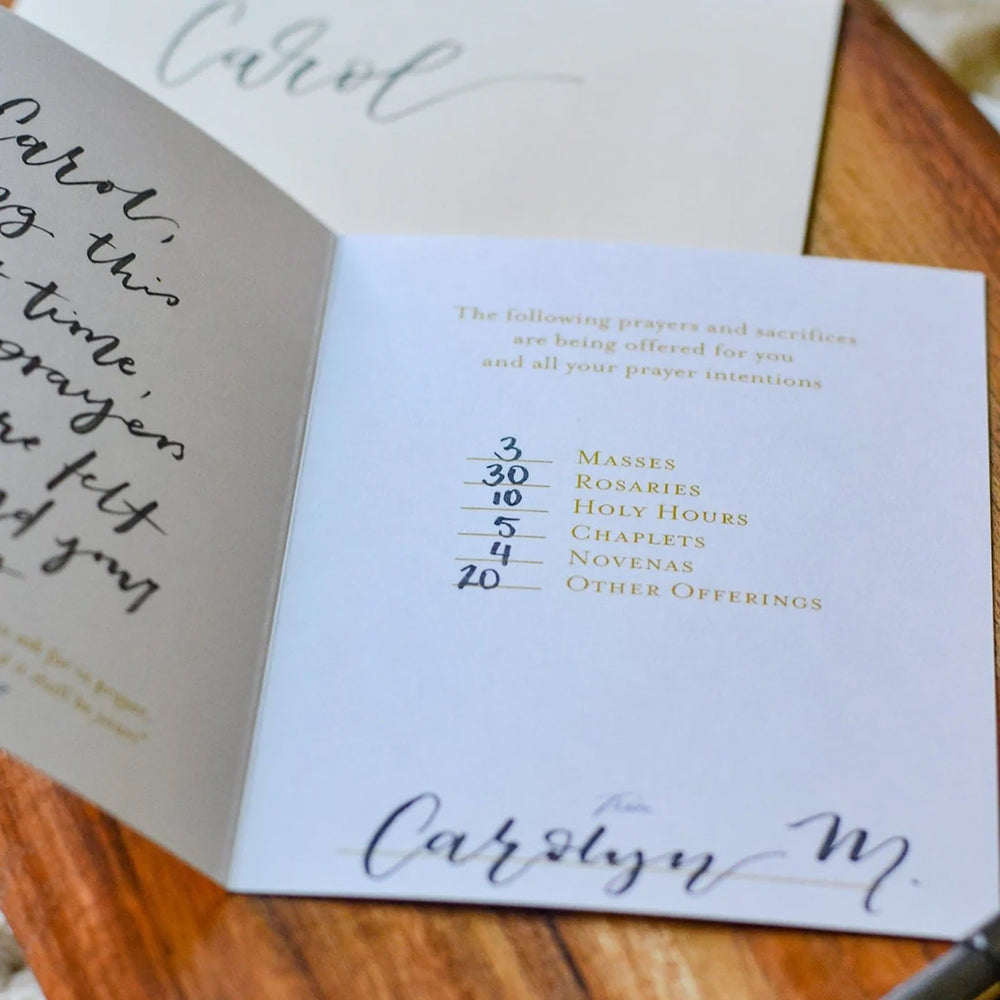 Carol
Carol,
this
time,
prayers
felt
your
ask for in prayer,
it shall be yours"
The following prayers and sacrifices
are being offered for you
and all your prayer intentions
3 MASSES
30 ROSARIES
10 HOLY HOURS
5 CHAPLETS
4 NOVENAS
20 OTHER OFFERINGS
From
Carolyn M.